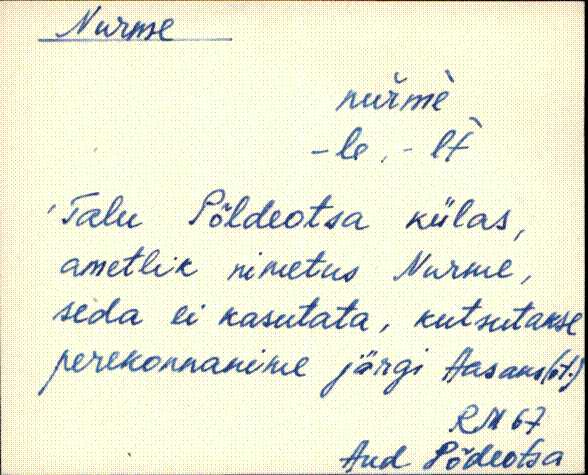 Nurme
nuřmè
-le, - lt̀
Talu Põldeotsa külas,
ametlik nimetus Nurme,
seda ei kasutata, kutsutakse
perekonnanime järgi Aasans(ot.)
RM 67
Aud Põdeotsa